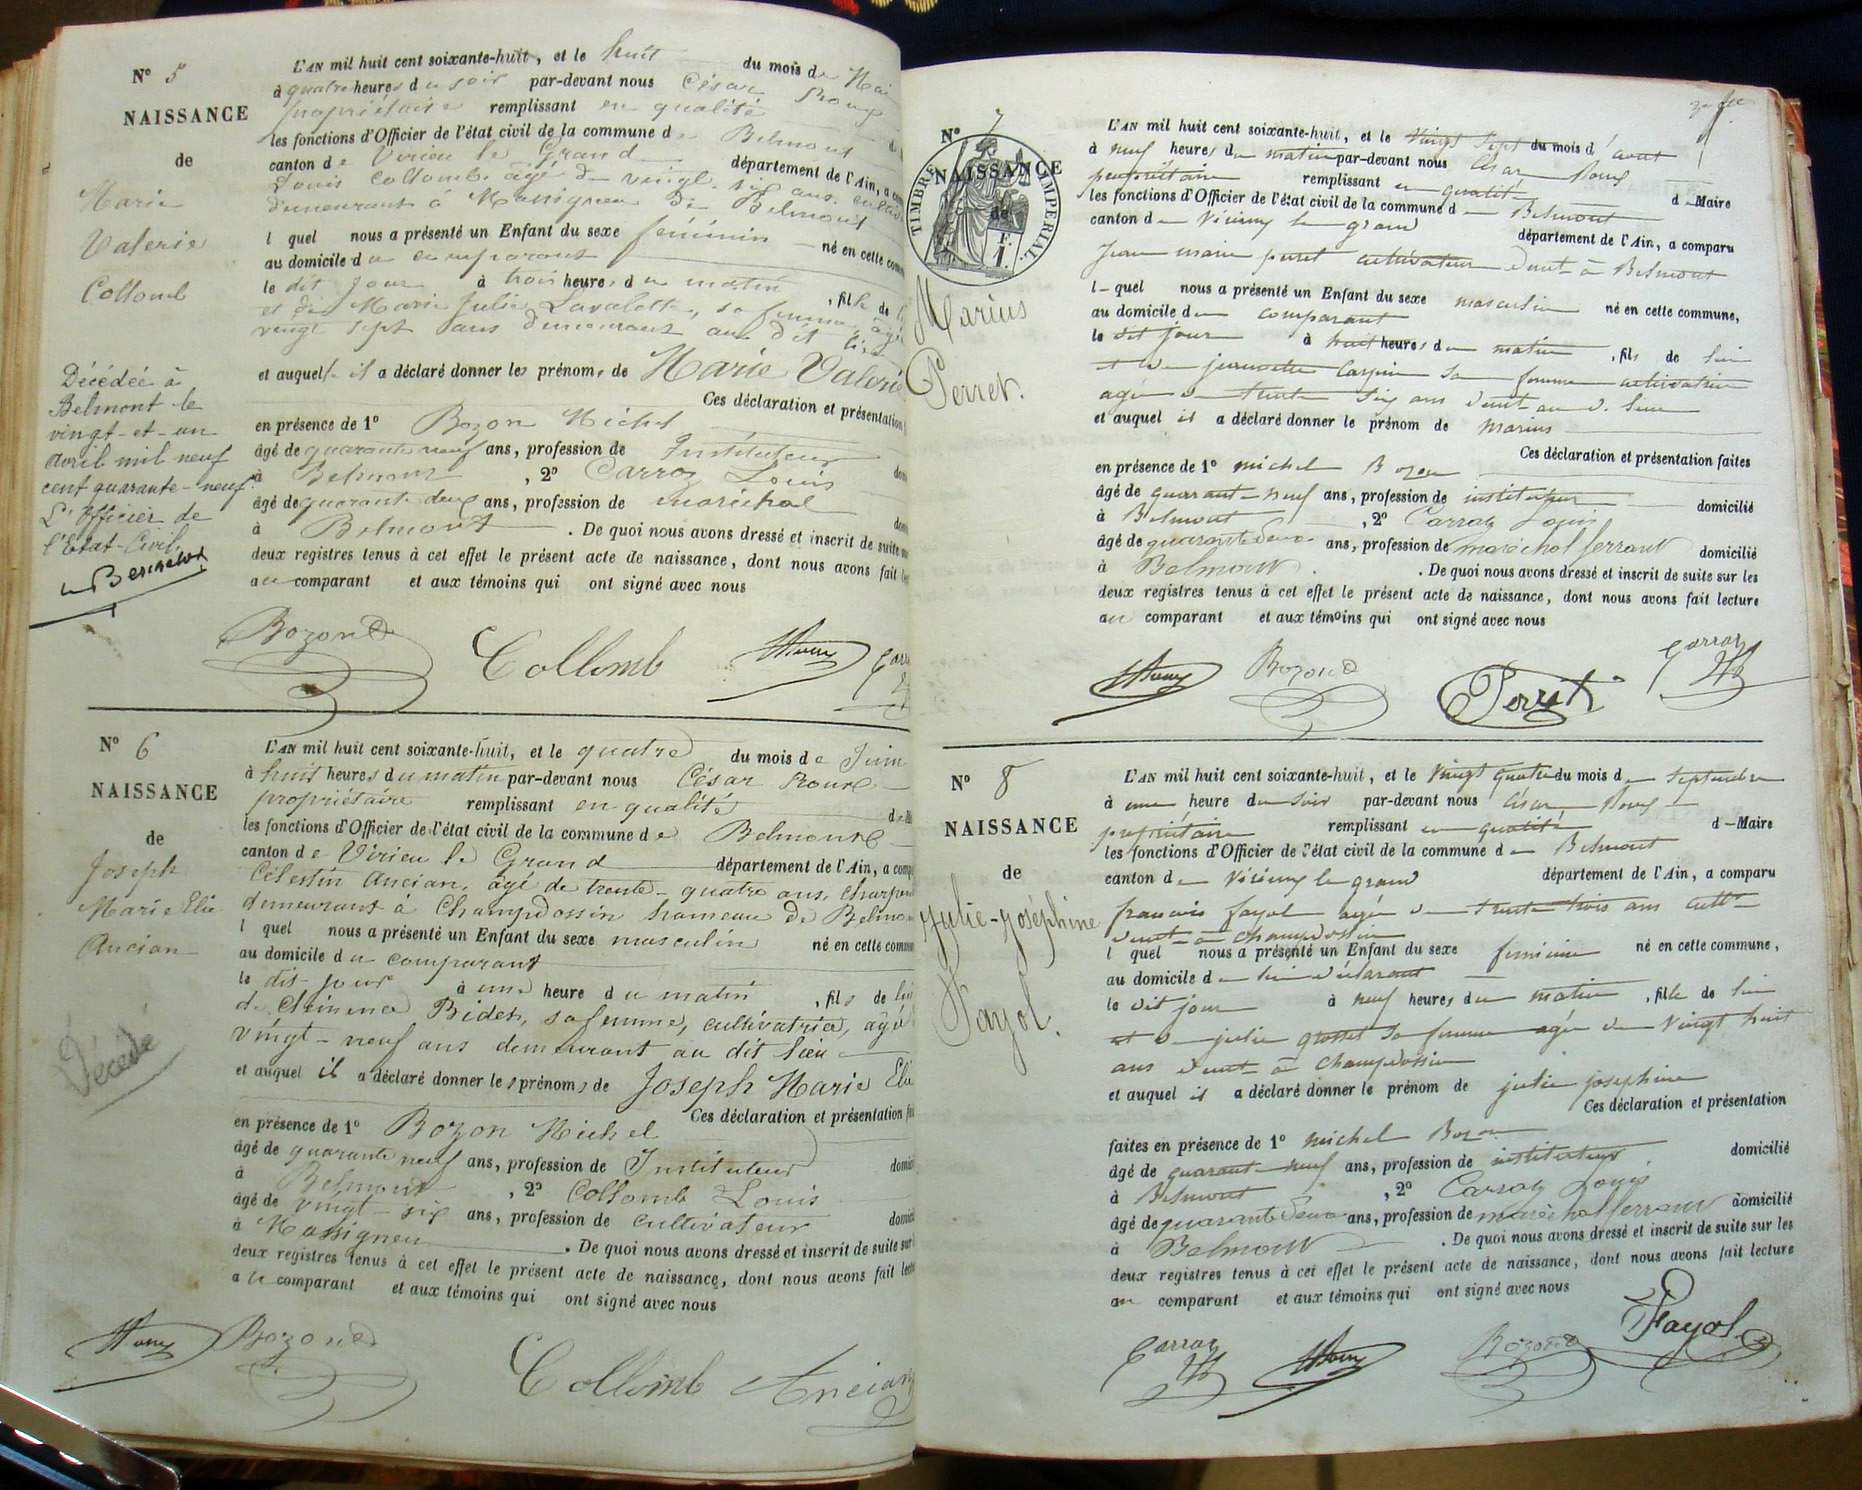 N° 5
NAISSANCE
de
Marie
Valerie
Collomb
Décédée à
Belmont le
vingt-et-un
avril mil neuf
cent quarante-neuf
L'Officier de
l'Etat-Civil,
L'AN mil huit cent soixante-huit, et le huit du mois de Mai
à quatre heures du soir par-devant nous César Roux
propriétaire remplissant en qualité
les fonctions d'Officier de l'état civil de la commune de Belmont
canton de Virieu le Grand département de l'Ain, a
Louis Collomb âgé de vingt-six ans,
demeurant à Massigneu de Belmont
l quel nous a présenté un Enfant du sexe féminin né en cette
au domicile du comparant
le dit jour à trois heures du matin, fille de
et de Marie Julie Lavalette, sa femme, âgée
vingt sept ans demeurant au dit lieu
et auquel il a déclaré donner les prénoms de Marie Valerie
Ces déclaration et présentation
en présence de 1° Bozon Michel
âgé de quarante neuf ans, profession de Instituteur
à Belmont, 2° Carraz Louis
âgé de quarante deux ans, profession de maréchal
à Belmont. De quoi nous avons dressé et inscrit de suite
deux registres tenus à cet effet le présent acte de naissance, dont nous avons fait
au comparant et aux témoins qui ont signé avec nous
Bozon Collomb
N° 6
NAISSANCE
de
Joseph
Marie Elie
Ancian
Décédé
L'AN mil huit cent soixante-huit, et le quatre du mois de Juin
à huit heures du matin par-devant nous César Roux
propriétaire remplissant en qualité
les fonctions d'Officier de l'état civil de la commune de Belmont
canton de Virieu le Grand département de l'Ain, a
Célestin Ancian, âgé de trente-quatre ans,
demeurant à Champdossin hameau de
l quel nous a présenté un Enfant du sexe masculin né en cette
au domicile du comparant
le dit jour à une heure du matin, fils de lui
vingt-neuf ans demeurant au dit lieu
et auquel il a déclaré donner les prénoms de Joseph Marie Elie
Ces déclaration et présentation
en présence de 1° Bozon Michel
âgé de quarante neuf ans, profession de Instituteur
à Belmont, 2° Collomb Louis
âgé de vingt-six ans, profession de cultivateur
à Massigneu. De quoi nous avons dressé et inscrit de suite sur
deux registres tenus à cet effet le présent acte de naissance, dont nous avons fait
au comparant et aux témoins qui ont signé avec nous
Bozon Collomb Ancian
N° 7
NAISSANCE
de
TIMBRE IMPERIAL
F.
1.
Marius
Perret.
L'AN mil huit cent soixante-huit, et le vingt sept du mois d'aout
à neuf heures du matin par-devant nous César Roux
propriétaire remplissant en qualité de Maire
les fonctions d'Officier de l'état civil de la commune de Belmont
canton de Virieu le grand département de l'Ain, a comparu
Jean marie perret cultivateur demt à Belmont
l quel nous a présenté un Enfant du sexe masculin né en cette commune,
au domicile du comparant
le dit jour à huit heures du matin, fils de lui
âgée de trente six ans demt au d. lieu
et auquel il a déclaré donner le prénom de marius
Ces déclaration et présentation faites
en présence de 1° michel Bozon
âgé de quarante-neuf ans, profession de instituteur domicilié
à Belmont, 2° Carraz Louis
âgé de quarante deux ans, profession de maréchal ferrant domicilié
à Belmont. De quoi nous avons dressé et inscrit de suite sur les
deux registres tenus à cet effet le présent acte de naissance, dont nous avons fait lecture
au comparant et aux témoins qui ont signé avec nous
Bozon Perret Carraz
N° 8
NAISSANCE
de
Julie-Joséphine
Fayol.
L'AN mil huit cent soixante-huit, et le vingt quatre du mois de Septembre
à une heure du soir par-devant nous César Roux
propriétaire remplissant en qualité de Maire
les fonctions d'Officier de l'état civil de la commune de Belmont
canton de Virieu le grand département de l'Ain, a comparu
francois fayol agé de trente trois ans cultr
demt à Champdossin
l quel nous a présenté un Enfant du sexe feminin né en cette commune,
au domicile de lui déclarant
le dit jour à neuf heures du matin, fille de lui
et de julie grosset sa femme agée de vingt huit
ans demt à Champdossin
et auquel il a déclaré donner le prénom de julie josephine
Ces déclaration et présentation
faites en présence de 1° michel Bozon
âgé de quarante-neuf ans, profession de instituteur domicilié
à Belmont, 2° Carraz Louis
âgé de quarante deux ans, profession de maréchal ferrant domicilié
à Belmont. De quoi nous avons dressé et inscrit de suite sur les
deux registres tenus à cet effet le présent acte de naissance, dont nous avons fait lecture
au comparant et aux témoins qui ont signé avec nous
Carraz Bozon Fayol